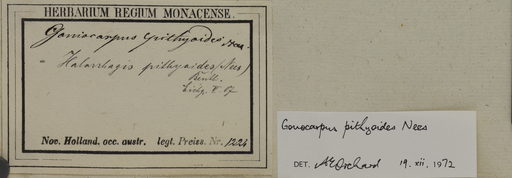 HERBARIUM REGIUM MONACENSE.
Goniocarpus pithyoides Nees.
= Halorrhagis pithyoides (Nees)
Benth.
Nov. Holland. occ. austr. legt. Preiss. Nr. 1224
Gonocarpus pithyoides Nees
DET. AEOrchard 19. xii. 1972